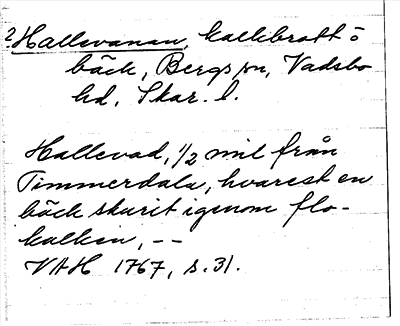 2. Hallevanan, kalkbrott o
bäck, Bergs sn, Vadsbo
hd, Skar. l.
Hallevad, 1/2 mil från
Timmerdala, hvarest en
bäck skurit igenom flo-
kalken, --
VAH 1767, s. 31.